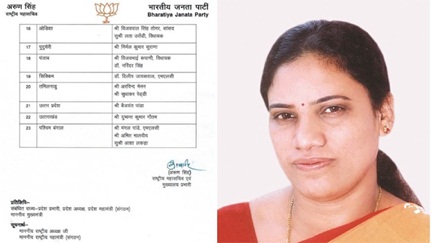 अरुण सिंह
राष्ट्रीय महासचिव
भारतीय जनता पार्टी
Bharatiya Janata Party
16 ओडिशा श्री विजयपाल सिंह तोमर, सांसद
सुश्री लता उसेंडी, विधायक
17 पुडुचेरी श्री निर्मल कुमार सुराणा
18 पंजाब श्री विजयभाई रूपाणी, विधायक
डॉ. नरिंदर सिंह
19 सिक्किम डॉ. दिलीप जायसवाल, एमएलसी
20 तमिलनाडु श्री अरविन्द मेनन
श्री सुधाकर रेड्डी
21 उत्तर प्रदेश श्री बैजयंत पांडा
22 उत्तराखंड श्री दुष्यन्त कुमार गौतम
23 पश्चिम बंगाल श्री मंगल पांडे, एमएलसी
श्री अमित मालवीय
सुश्री आशा लकड़ा
(अरुण सिंह)
राष्ट्रीय महासचिव एवं
मुख्यालय प्रभारी
प्रतिलिपि-
संबंधित राज्य-प्रदेश प्रभारी, प्रदेश अध्यक्ष, प्रदेश महामंत्री (संगठन)
माननीय मुख्यमंत्री
सूचनार्थ-
माननीय राष्ट्रीय अध्यक्ष जी
माननीय राष्ट्रीय महामंत्री (संगठन)